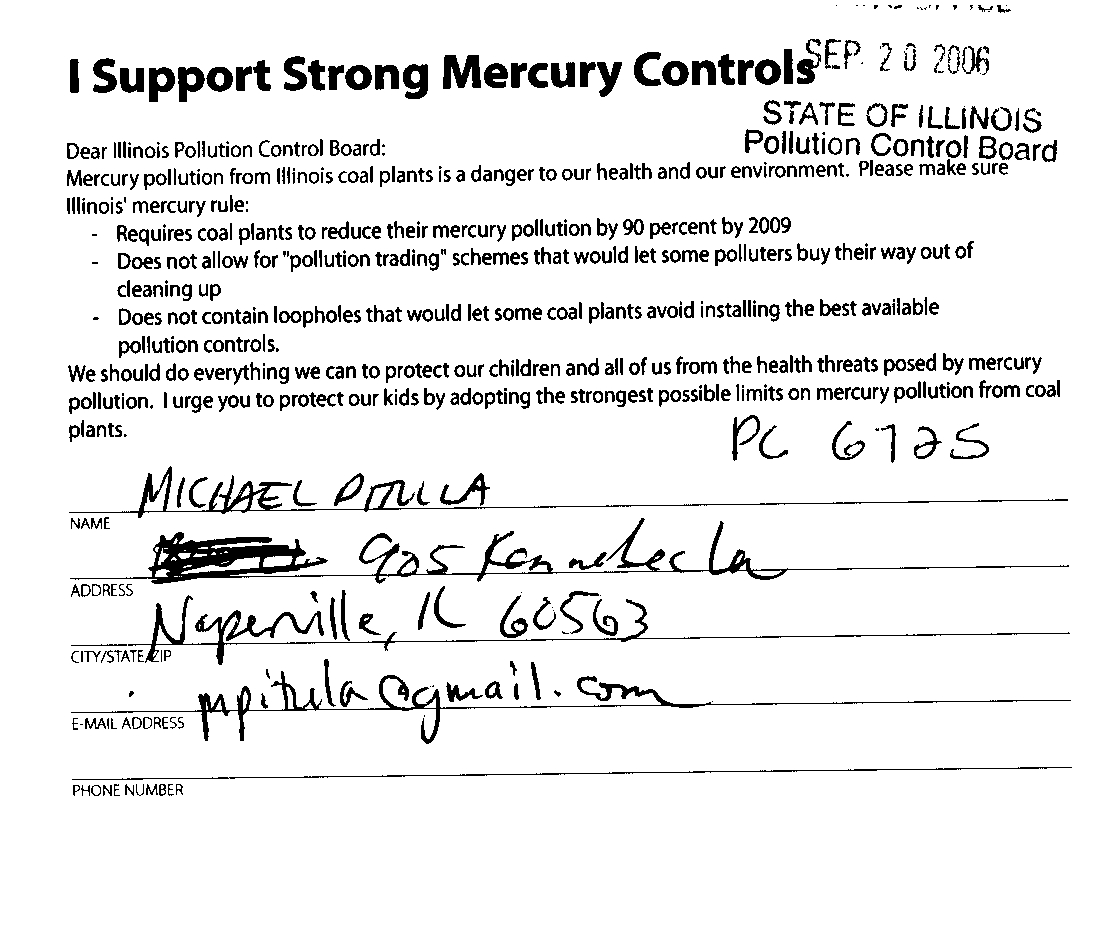 I Support Strong Mercury Controls
SEP 20 2006
STATE OF ILLINOIS
Pollution Control Board
Dear Illinois Pollution Control Board:
Mercury pollution from Illinois coal plants is a danger to our health and our environment. Please make sure
Illinois' mercury rule:
- Requires coal plants to reduce their mercury pollution by 90 percent by 2009
- Does not allow for "pollution trading" schemes that would let some polluters buy their way out of
cleaning up
- Does not contain loopholes that would let some coal plants avoid installing the best available
pollution controls.
We should do everything we can to protect our children and all of us from the health threats posed by mercury
pollution. I urge you to protect our kids by adopting the strongest possible limits on mercury pollution from coal
plants.
PC 6725
MICHAEL PITULA
NAME
905 Kennebec Ln
ADDRESS
Naperville, IL 60563
CITY/STATE/ZIP
mpitula@gmail.com
E-MAIL ADDRESS
PHONE NUMBER